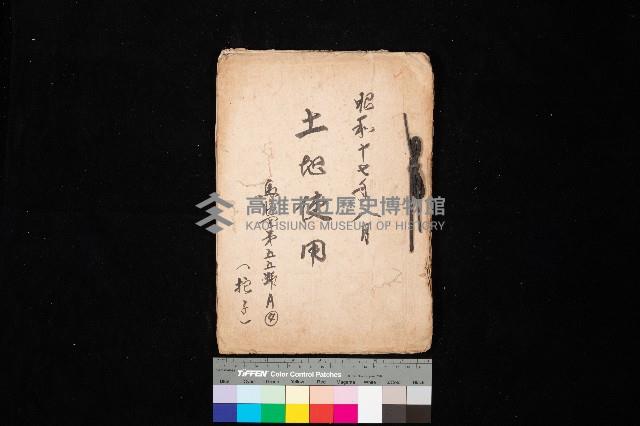 昭和十七年八月
土地使用
馬公第五五號A④
(控え)
高雄市立歷史博物館
KAOHSIUNG MUSEUM OF HISTORY
TIFFEN Color Control Patches
Blue Cyan Green Yellow Red Magenta White 3/Color Black